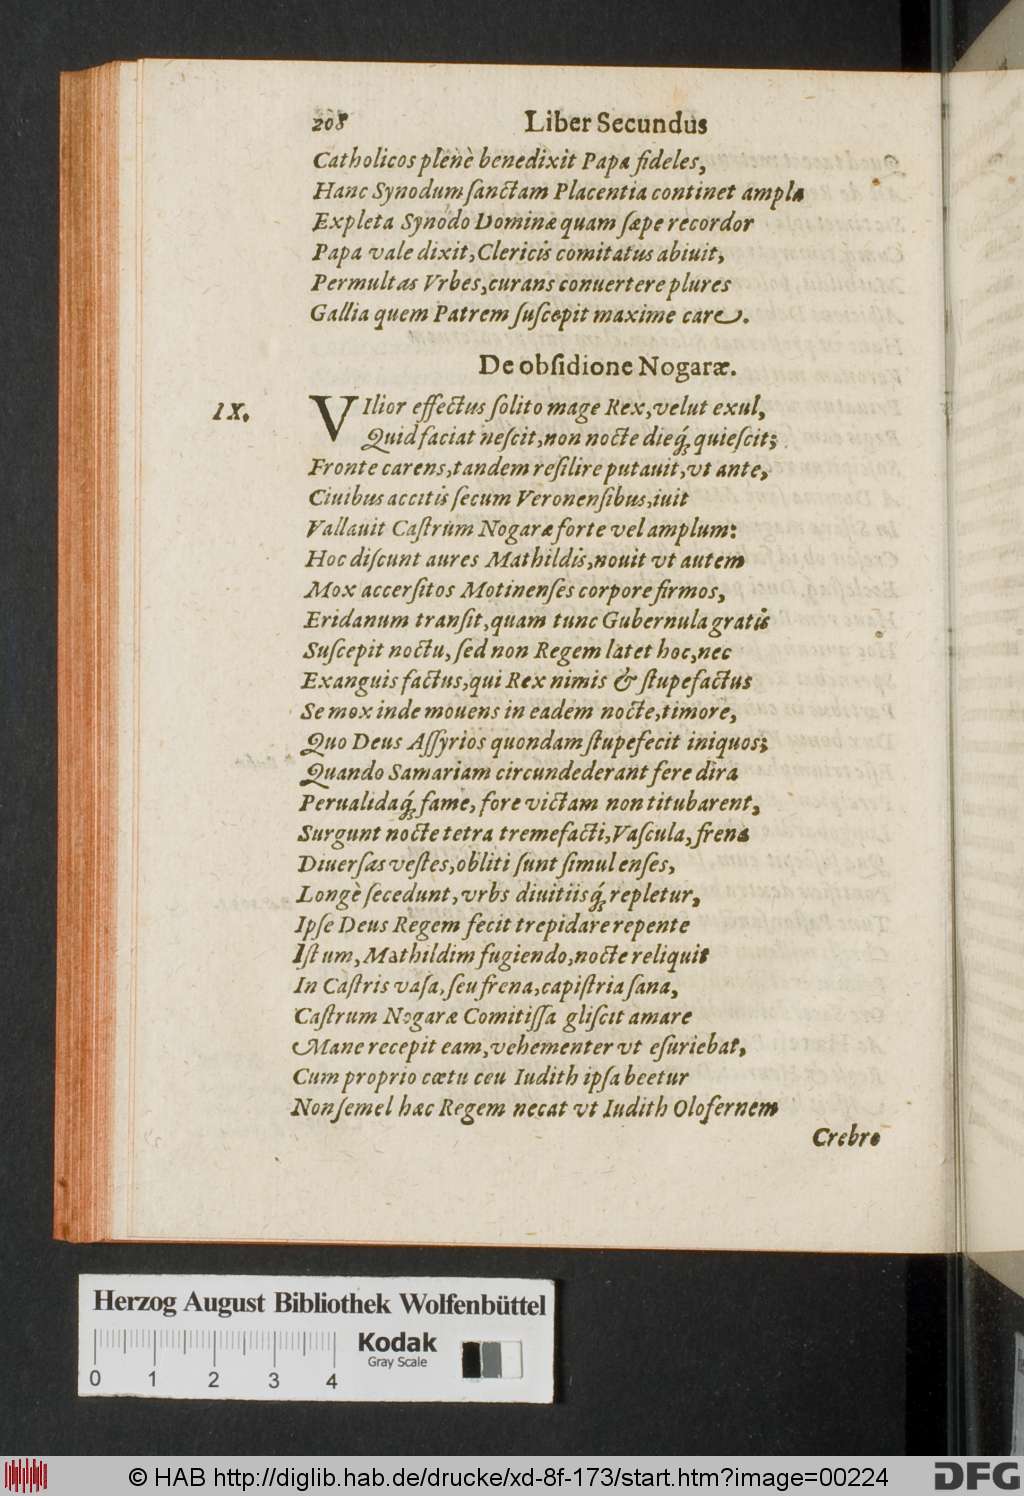 208 Liber Secundus
Catholicos plenè benedixit Papa fideles,
Hanc Synodum ſanctam Placentia continet ampla
Expleta Synodo Dominæ quam ſæpe recordor
Papa vale dixit, Clericis comitatus abiuit,
Permultas Vrbes, curans conuertere plures
Gallia quem Patrem ſuſcepit maxime care.
De obſidione Nogaræ.
IX. VIlior effectus ſolito mage Rex, velut exul,
Quid faciat neſcit, non nocte dieq́; quieſcit;
Fronte carens, tandem reſilire putauit, vt ante,
Ciuibus accitis ſecum Veronenſibus, iuit
Vallauit Caſtrum Nogaræ forte vel amplum:
Hoc diſcunt aures Mathildis, nouit vt autem
Mox accerſitos Motinenſes corpore firmos,
Eridanum tranſit, quam tunc Gubernula gratis
Suſcepit noctu, ſed non Regem latet hoc, nec
Exanguis factus, qui Rex nimis & ſtupefactus
Se mox inde mouens in eadem nocte, timore,
Quo Deus Aſſyrios quondam ſtupefecit iniquos;
Quando Samariam circundederant fere dira
Perualidaq́; fame, fore victam non titubarent,
Surgunt nocte tetra tremefacti, Vaſcula, frena
Diuerſas veſtes, obliti ſunt ſimul enſes,
Longè ſecedunt, vrbs diuitiisq́; repletur,
Ipſe Deus Regem fecit trepidare repente
Iſtum, Mathildim fugiendo, nocte reliquit
In Caſtris vaſa, ſeu frena, capiſtria ſana,
Caſtrum Nogaræ Comitiſſa gliſcit amare
Mane recepit eam, vehementer vt eſuriebat,
Cum proprio cœtu ceu Iudith ipſa beetur
Non ſemel hæc Regem necat vt Iudith Olofernem
Crebro
Herzog August Bibliothek Wolfenbüttel
Kodak
Gray Scale
0 1 2 3 4
© HAB http://diglib.hab.de/drucke/xd-8f-173/start.htm?image=00224
DFG